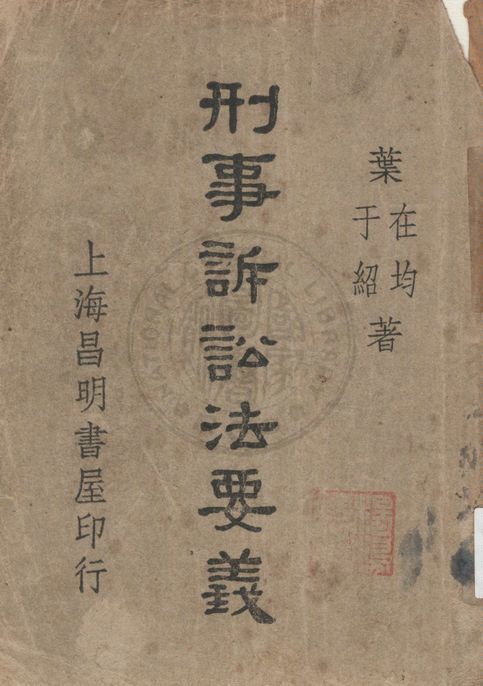 葉
在均
于紹
著
刑事訴訟法要義
上海昌明書屋印行
NATIONAL
LIBRARY